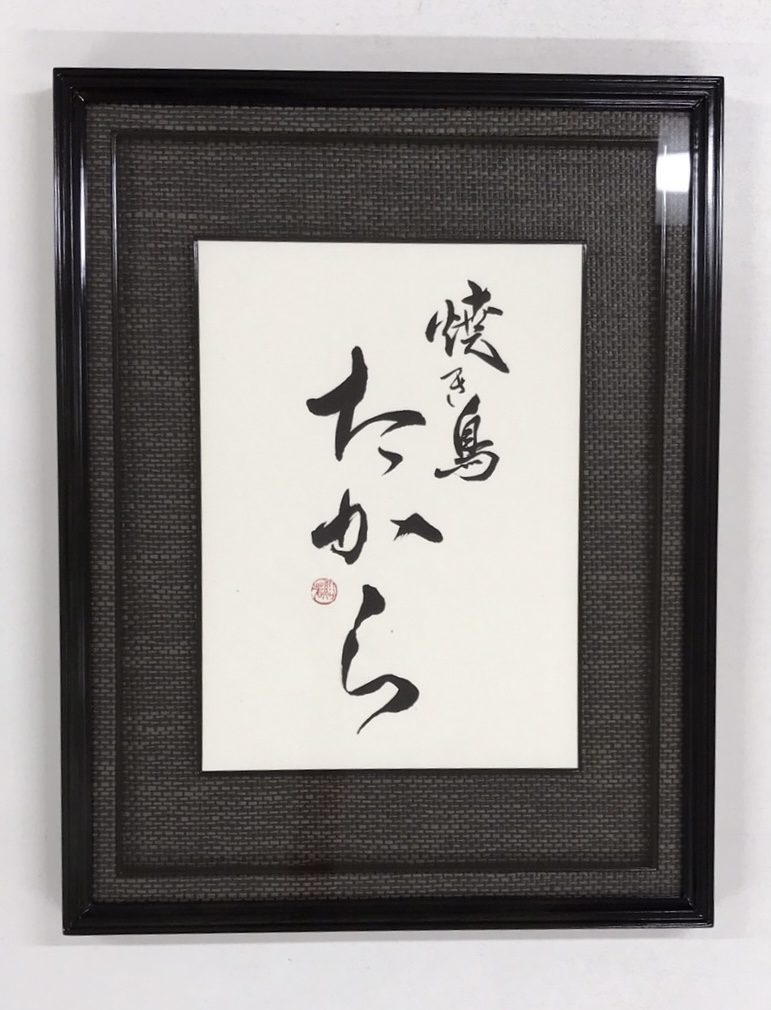 焼き鳥
たから